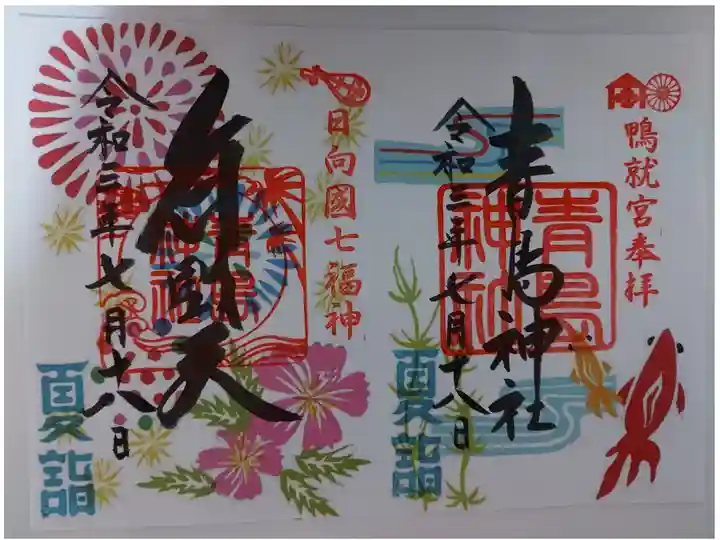 鴨就宮奉拝
青島神社
青島神社
令和三年七月十八日
夏詣
日向國七福神
弁財天
青島神社
令和三年七月十八日
夏詣